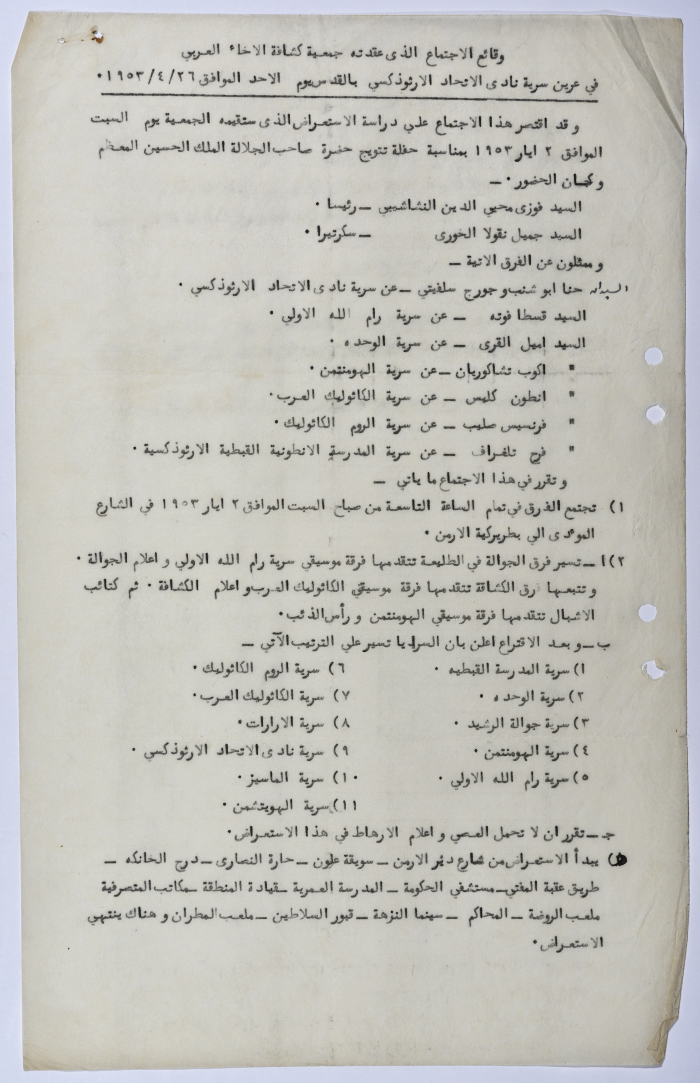 وقائع الاجتماع الذى عقدته جمعية كشافة الاخاء العربي
في عرين سرية نادى الاتحاد الارثوذكسي بالقدس يوم الاحد الموافق ٢٦/ ٤/ ١٩٥٣٠
و قد اقتصر هذا الاجتماع علي دراسة الاستعراض الذى ستقيمه الجمعية يوم السبت
الموافق ٢ ايار ١٩٥٣ بمناسبة حفلة تتويج حضرة صاحب الجلالة الملك الحسين المعظم
و كان الحضور ٠ ــ
السيد فوزى محيي الدين النشاشيبي ــ رئيسا ٠
السيد جميل نقولا الخورى ــ سكرتيرا ٠
و ممثلون عن الفرق الاتية ــ
السيدان حنا ابو شنب و جورج سلفيتي ــ عن سرية نادى الاتحاد الارثوذكسي ٠
السيد قسطا فوته ــ عن سرية رام الله الاولي ٠
السيد اميل القرى ــ عن سرية الوحده ٠
" اكوب تشاكوريان ــ عن سرية الهومنتمن ٠
" انطون كليس ــ عن سرية الكاثوليك العرب ٠
" فرنسيس صليب ــ عن سرية الروم الكاثوليك ٠
" فرج تلغراف ــ عن سرية المدرسة الانطونية القبطية الارثوذكسية ٠
و تقرر في هذا الاجتماع ما ياتي ــ
١) تجتمع الفرق في تمام الساعة التاسعة من صباح السبت الموافق ٢ ايار ١٩٥٣ في الشارع
المودى الي بطريركية الارمن ٠
٢)ا ــ تسير فرق الجوالة في الطليعة تتقدمها فرقة موسيقي سرية رام الله الاولي و اعلام الجوالة ٠
و تتبعها فرق الكشافة تتقدمها فرقة موسيقي الكاثوليك العرب و اعلام الكشافة ٠ ثم كتائب
الاشبال تتقدمها فرقة موسيقي الهومنتمن و رأس الذئب ٠
ب ــ و بعد الاقتراع اعلن بان السرايا تسير علي الترتيب الآتي ــ
١) سرية المدرسة القبطيه ٠ ٦) سرية الروم الكاثوليك ٠
٢) سرية الوحده ٠ ٧) سرية الكاثوليك العرب ٠
٣) سرية جوالة الرشيد ٠ ٨) سرية الارارات ٠
٤) سرية الهومنتمن ٠ ٩) سرية نادى الاتحاد الارثوذكسي ٠
٥) سرية رام الله الاولي ٠ ١٠) سرية الماسيز ٠
١١) سرية الهويتشمن ٠
جـ ــ تقرر ان لا تحمل العصي و اعلام الارهاط في هذا الاستعراض ٠
يبدأ الاستعراض من شارع دير الارمن ــ سويقة علون ــ حارة النصارى ــ درج الخانكه ــ
طريق عقبة المفتي ــ مستشفي الحكومة ــ المدرسة العمرية ــ قيادة المنطقة ــ مكاتب المتصرفية
ملعب الروضة ــ المحاكم ــ سينما النزهة ــ قبور السلاطين ــ ملعب المطران و هناك ينتهي
الاستعراض ٠